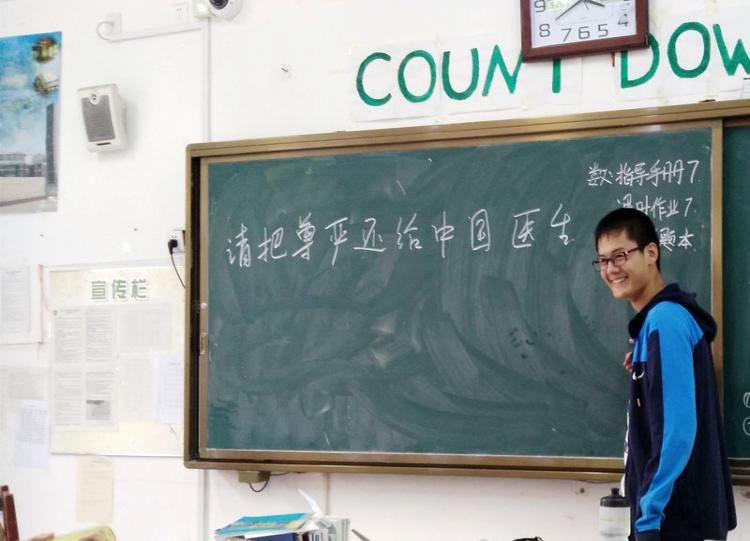 9 4
8 7 6 5
COUNT DOW
数:指导手册7
课时作业7
题本
请把尊严还给中国医生
宣传栏